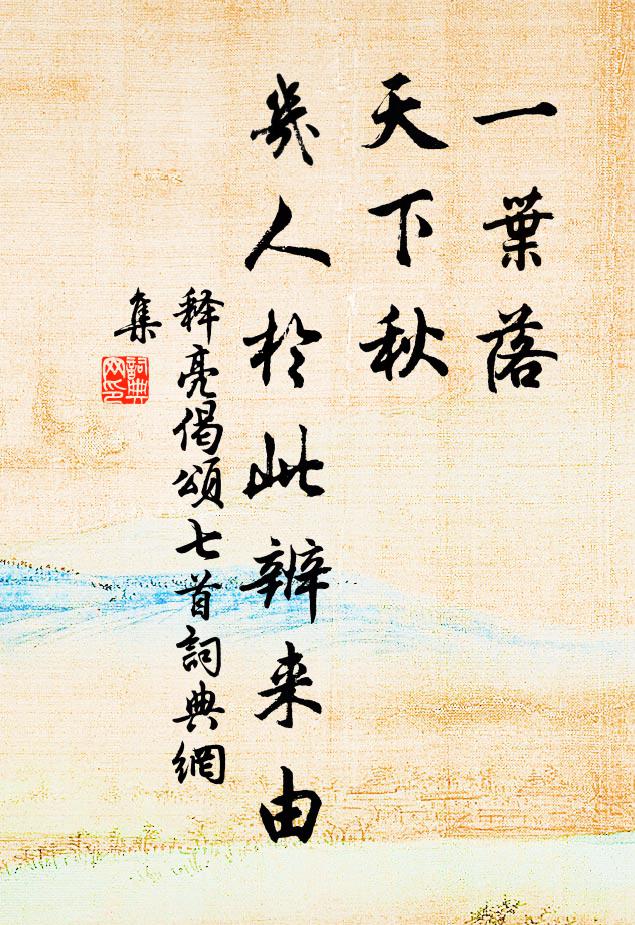 一葉落
天下秋
幾人於此辨来由
释亮偈頌七首詞典網
集
詞典
网印